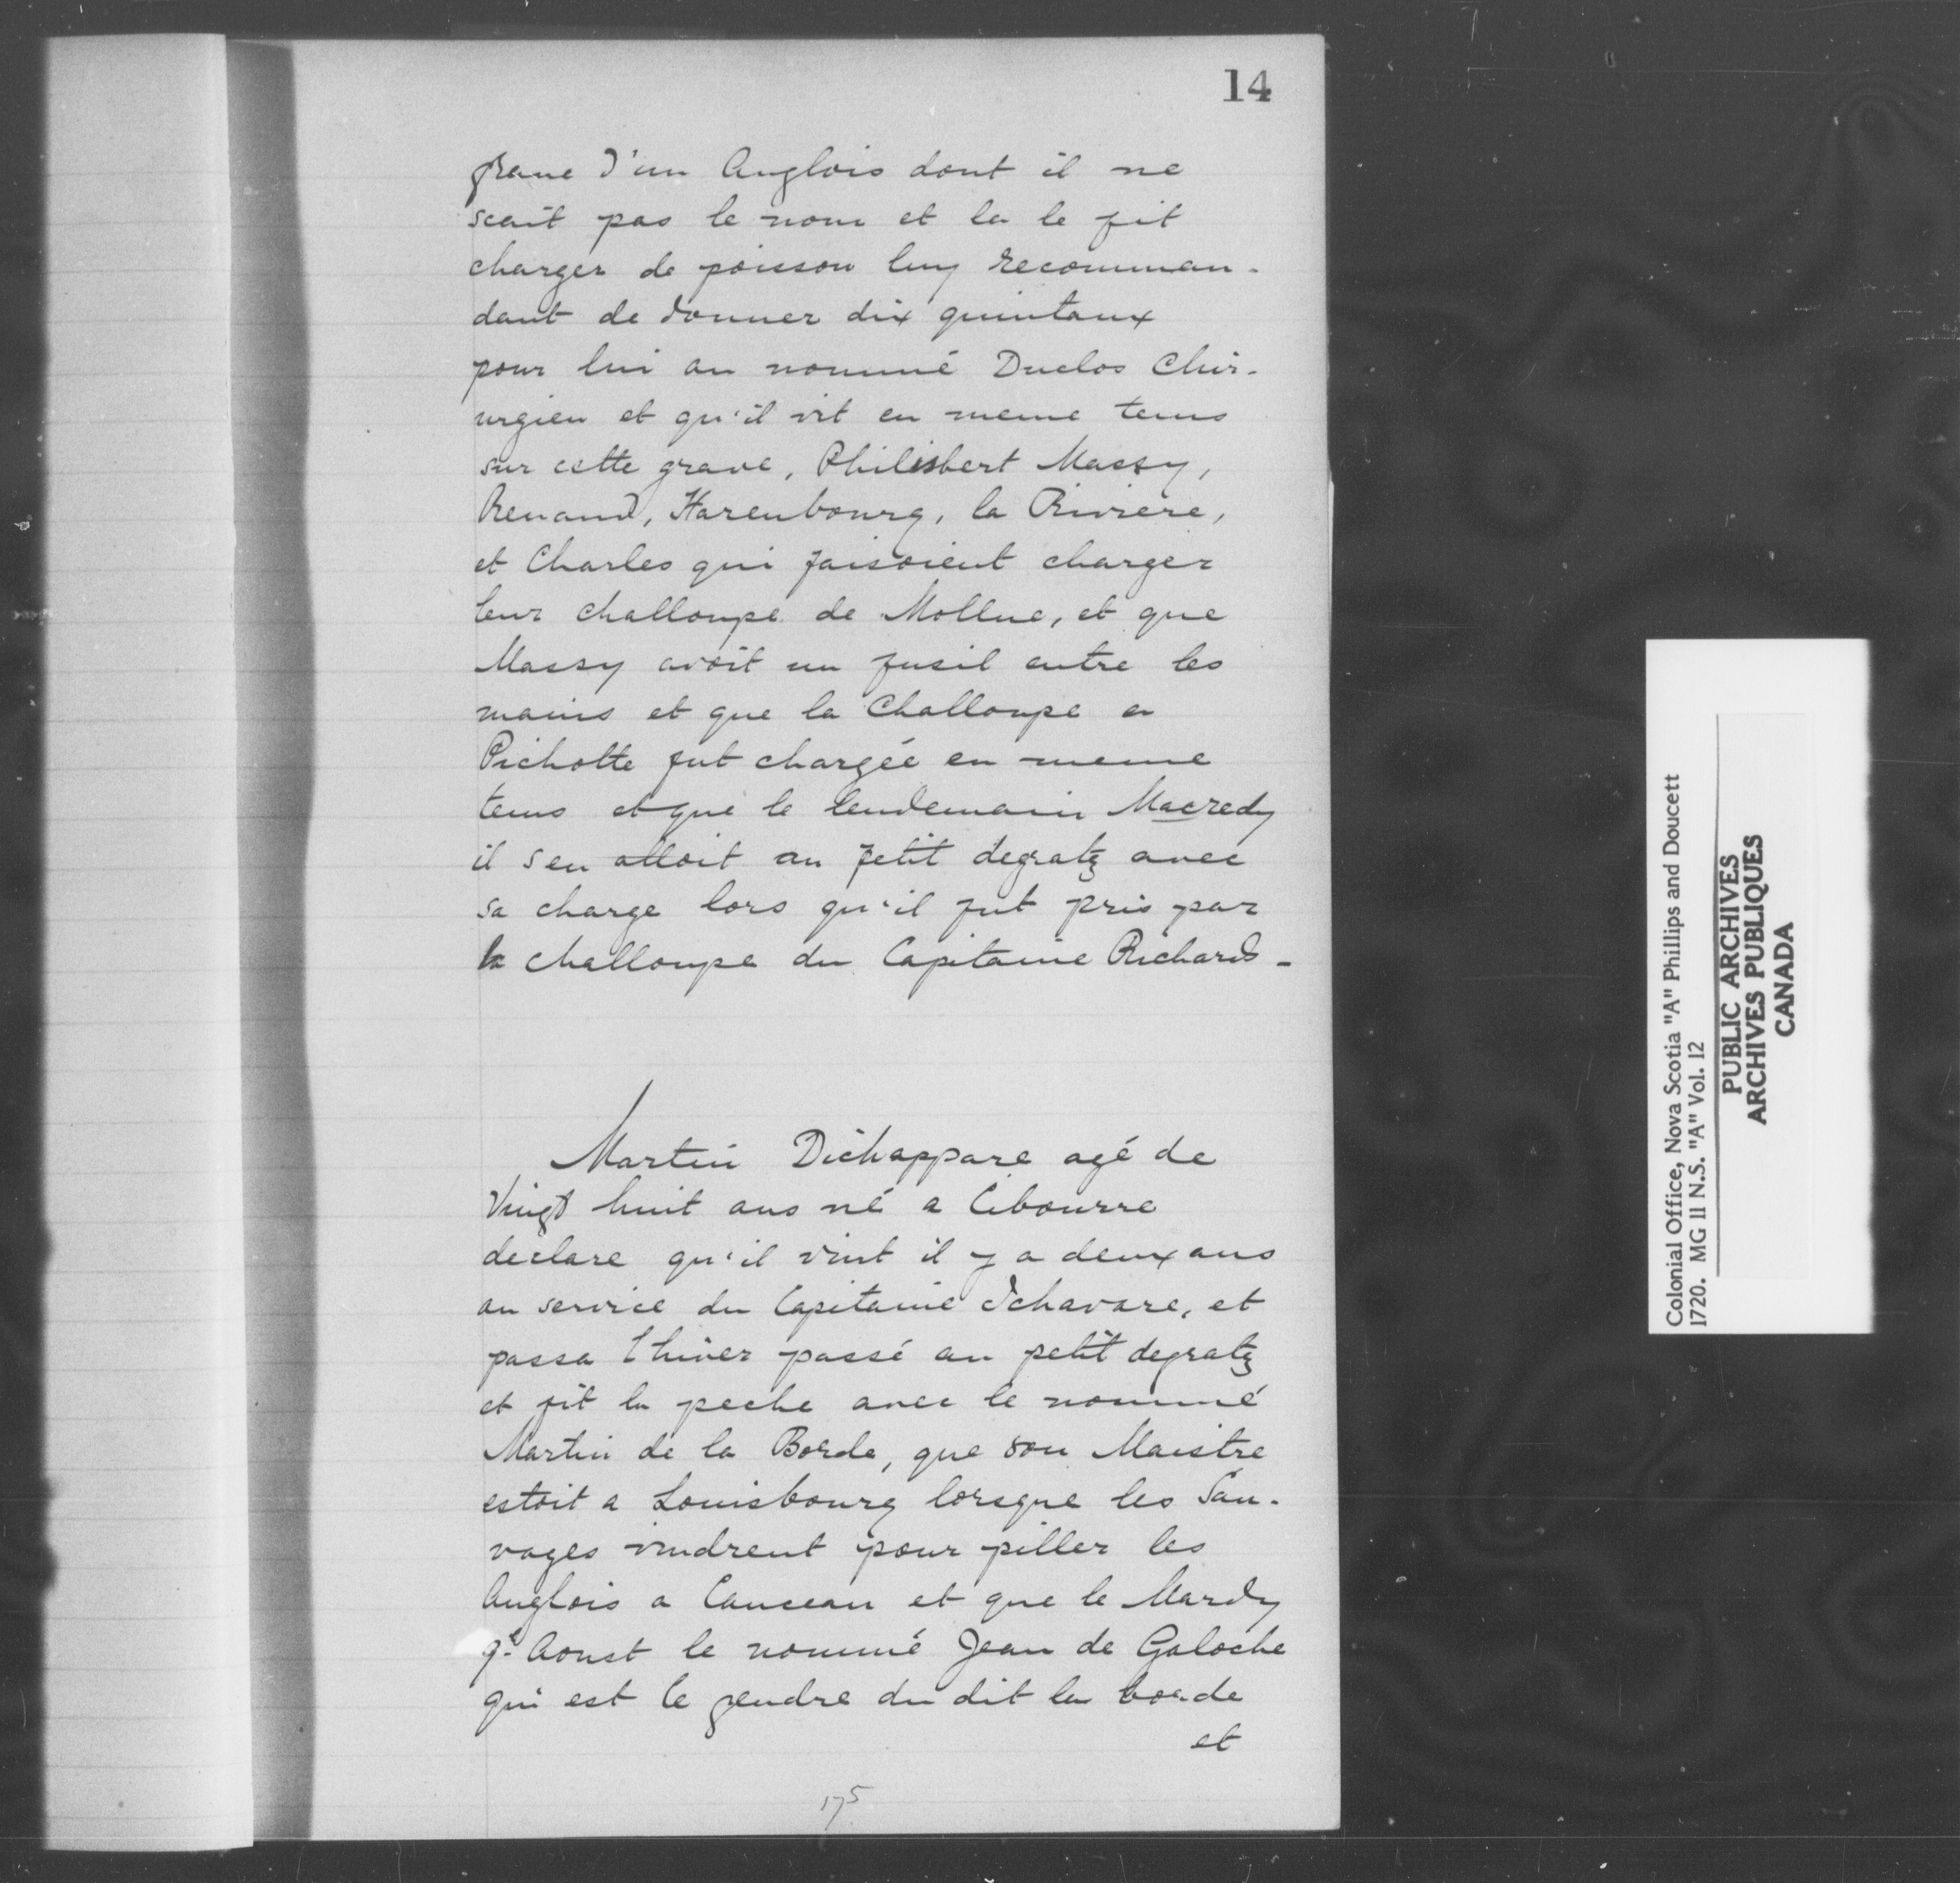 14
grave d'un Anglois dont il ne
scait pas le nom et la le fit
charger de poisson luy recomman-
dant de donner dix quintaux
pour lui au nommé Duclos Chir-
urgien et qu'il vit en meme tems
sur cette grave, Philisbert Massy,
Renaud, Harenbourg, la Riviere,
et Charles qui faisoient charger
leur challoupe de Mollue, et que
Massy avoit un fusil entre les
mains et que la Challoupe a
Pichotte fut chargée en meme
tems et que le lendemain Macredy
il s'en alloit au petit degratz avec
sa charge lors qu'il fut pris par
la challoupe du Capitaine Richards -
Martin Dichappare agé de
Vingt huit ans né a Cibourre
declare qu'il vint il y a deux ans
au service du Capitaine Ichavare, et
passa l'hiver passé au petit degratz
et fit la peche avec le nommé
Martin de la Borde, que son Maistre
estoit a Louisbourg lorsque les Sau-
vages vindrent pour piller les
Anglois a Canceau et que le Mardy
9e Aoust le nommé Jean de Galoche
qui est le gendre du dit la borde
et
175
Colonial Office, Nova Scotia "A" Phillips and Doucett
1720. MG 11 N.S. "A" Vol. 12
PUBLIC ARCHIVES
ARCHIVES PUBLIQUES
CANADA